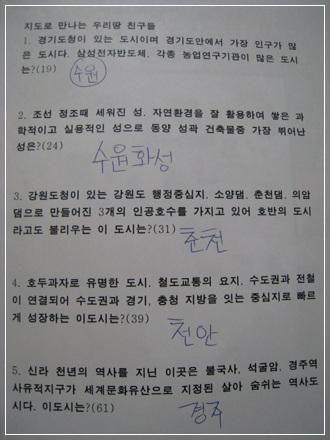 지도로 만나는 우리땅 친구들
1. 경기도청이 있는 도시이며 경기도안에서 가장 인구가 많
은 도시다. 삼성전자반도체, 각종 농업연구기관이 많은 도시
는?(19)
수원
2. 조선 정조때 세워진 성. 자연환경을 잘 활용하여 쌓은 과
학적이고 실용적인 성으로 동양 성곽 건축물중 가장 뛰어난
성은?(24)
수원화성
3. 강원도청이 있는 강원도 행정중심지, 소양댐, 춘천댐, 의암
댐으로 만들어진 3개의 인공호수를 가지고 있어 호반의 도시
라고도 불리우는 이 도시는?(31)
춘천
4. 호두과자로 유명한 도시, 철도교통의 요지, 수도권과 전철
이 연결되어 수도권과 경기, 충청 지방을 잇는 중심지로 빠르
게 성장하는 이도시는?(39)
천안
5. 신라 천년의 역사를 지닌 이곳은 불국사, 석굴암, 경주역
사유적지구가 세계문화유산으로 지정된 살아 숨쉬는 역사도
시다. 이도시는?(61)
경주